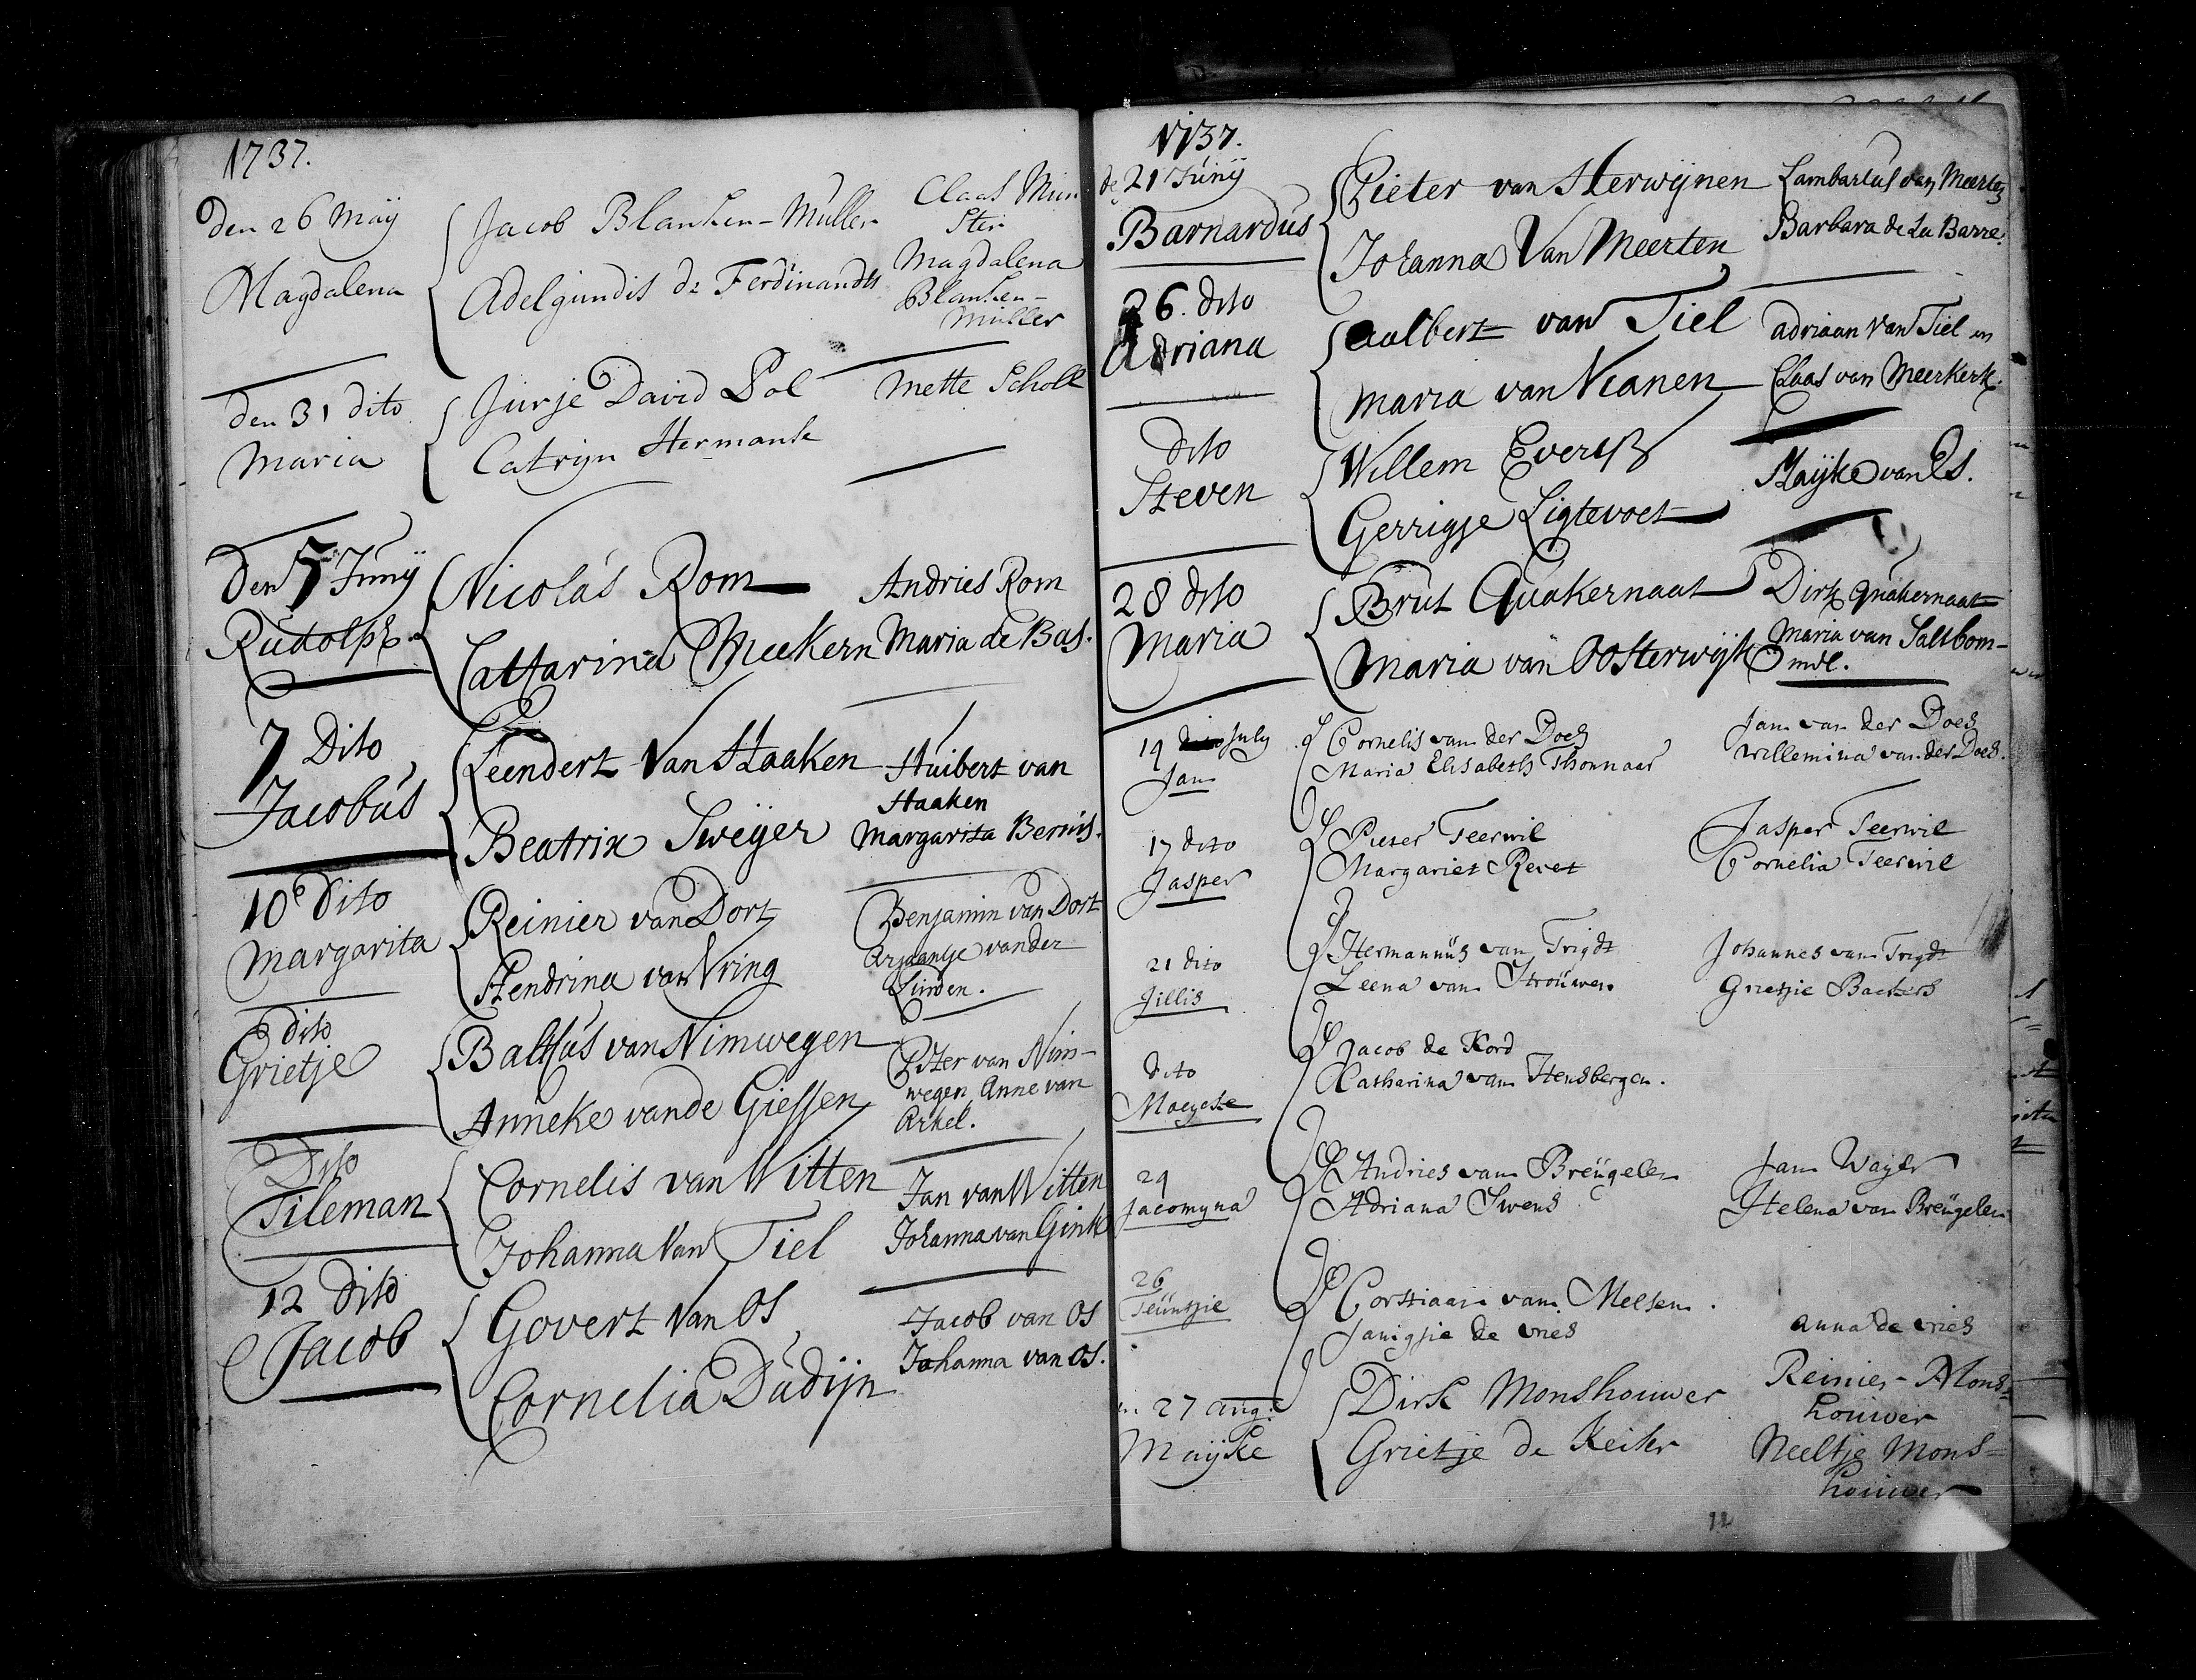 1737.
den 26 Maÿ
Magdalena
Jacob Blanken-Muller
Adelgundis de Ferdinands
Claas Mun
ster
Magdalena
Blanken-
Muller
den 31 dito
Maria
Jurje David Pol
Catrijn Hermansk
Mette Scholl
Den 5 Junÿ
Rudolph.
Nicolas Rom
Catharina Meekern
Andries Rom
Maria de Bas.
7 Dito
Jacobus
Leendert Van Haaken
Beatrix Sweÿer
Huibert van
Haaken
Margarita Bernis.
10e Dito
Margarita
Reinier van Dort
Hendrina van Vring
Benjamin van Dort
Arjaantje vander
Linden.
dito
Grietje
Baltus van Nimwegen
Anneke vande Giessen
Piter van Nim-
wegen Anne van
Arkel.
Dito
Tileman
Cornelis van Witten
Johanna Van Tiel
Jan van Witten
Johanna van Gink
12 Dito
Jacob
Govert Van Os
Cornelia Dudijn
Jacob van Os
Johanna van Os.
1737.
de 21 Junÿ
Barnardus
Pieter van Herwijnen
Johanna Van Meerten
Lambartus van Meerten
Barbara de La Barre.
26. dito
Adriana
Aalbert van Tiel
Maria van Vianen
Adriaan Van Tiel en
Claas van Meerkerk.
Dito
Steven
Willem Everts
Gerrigje Ligtevoet
Maijke van Es.
28 dito
Maria
Brut Quakernaat
Maria van Oosterwijk
Dirk Quakernaat
Maria van Saltbom-
mel.
19 July
Jan
Cornelis van der Does
Maria Elisabeth Thonnaar
Jan van der Does
Willemina van der Does.
17 dito
Jasper
Pieter Teerwil
Margariet Revet
Jasper Teerwil
Cornelia Teerwil
21 dito
Jillis
Hermannus van Trigdt
Leena van Strouwen
Johannes van Trigdt
Grietjie Backers
dito
Maeyete
Jacob de Kord
Catharina van Hensbergen.
24
Jacomyna
Andries van Breugelen
Adriana Swens
Jan Wayer
Helena van Breugelen
26
Teuntjie
Corstiaan van Meesen.
Janigjie de vries
Anna de vries
27 Aug:
Maijke
Dirk Monshouwer
Grietje de Keiser
Reinier Mons=
houwer
Neeltje Mons=
houwer
12